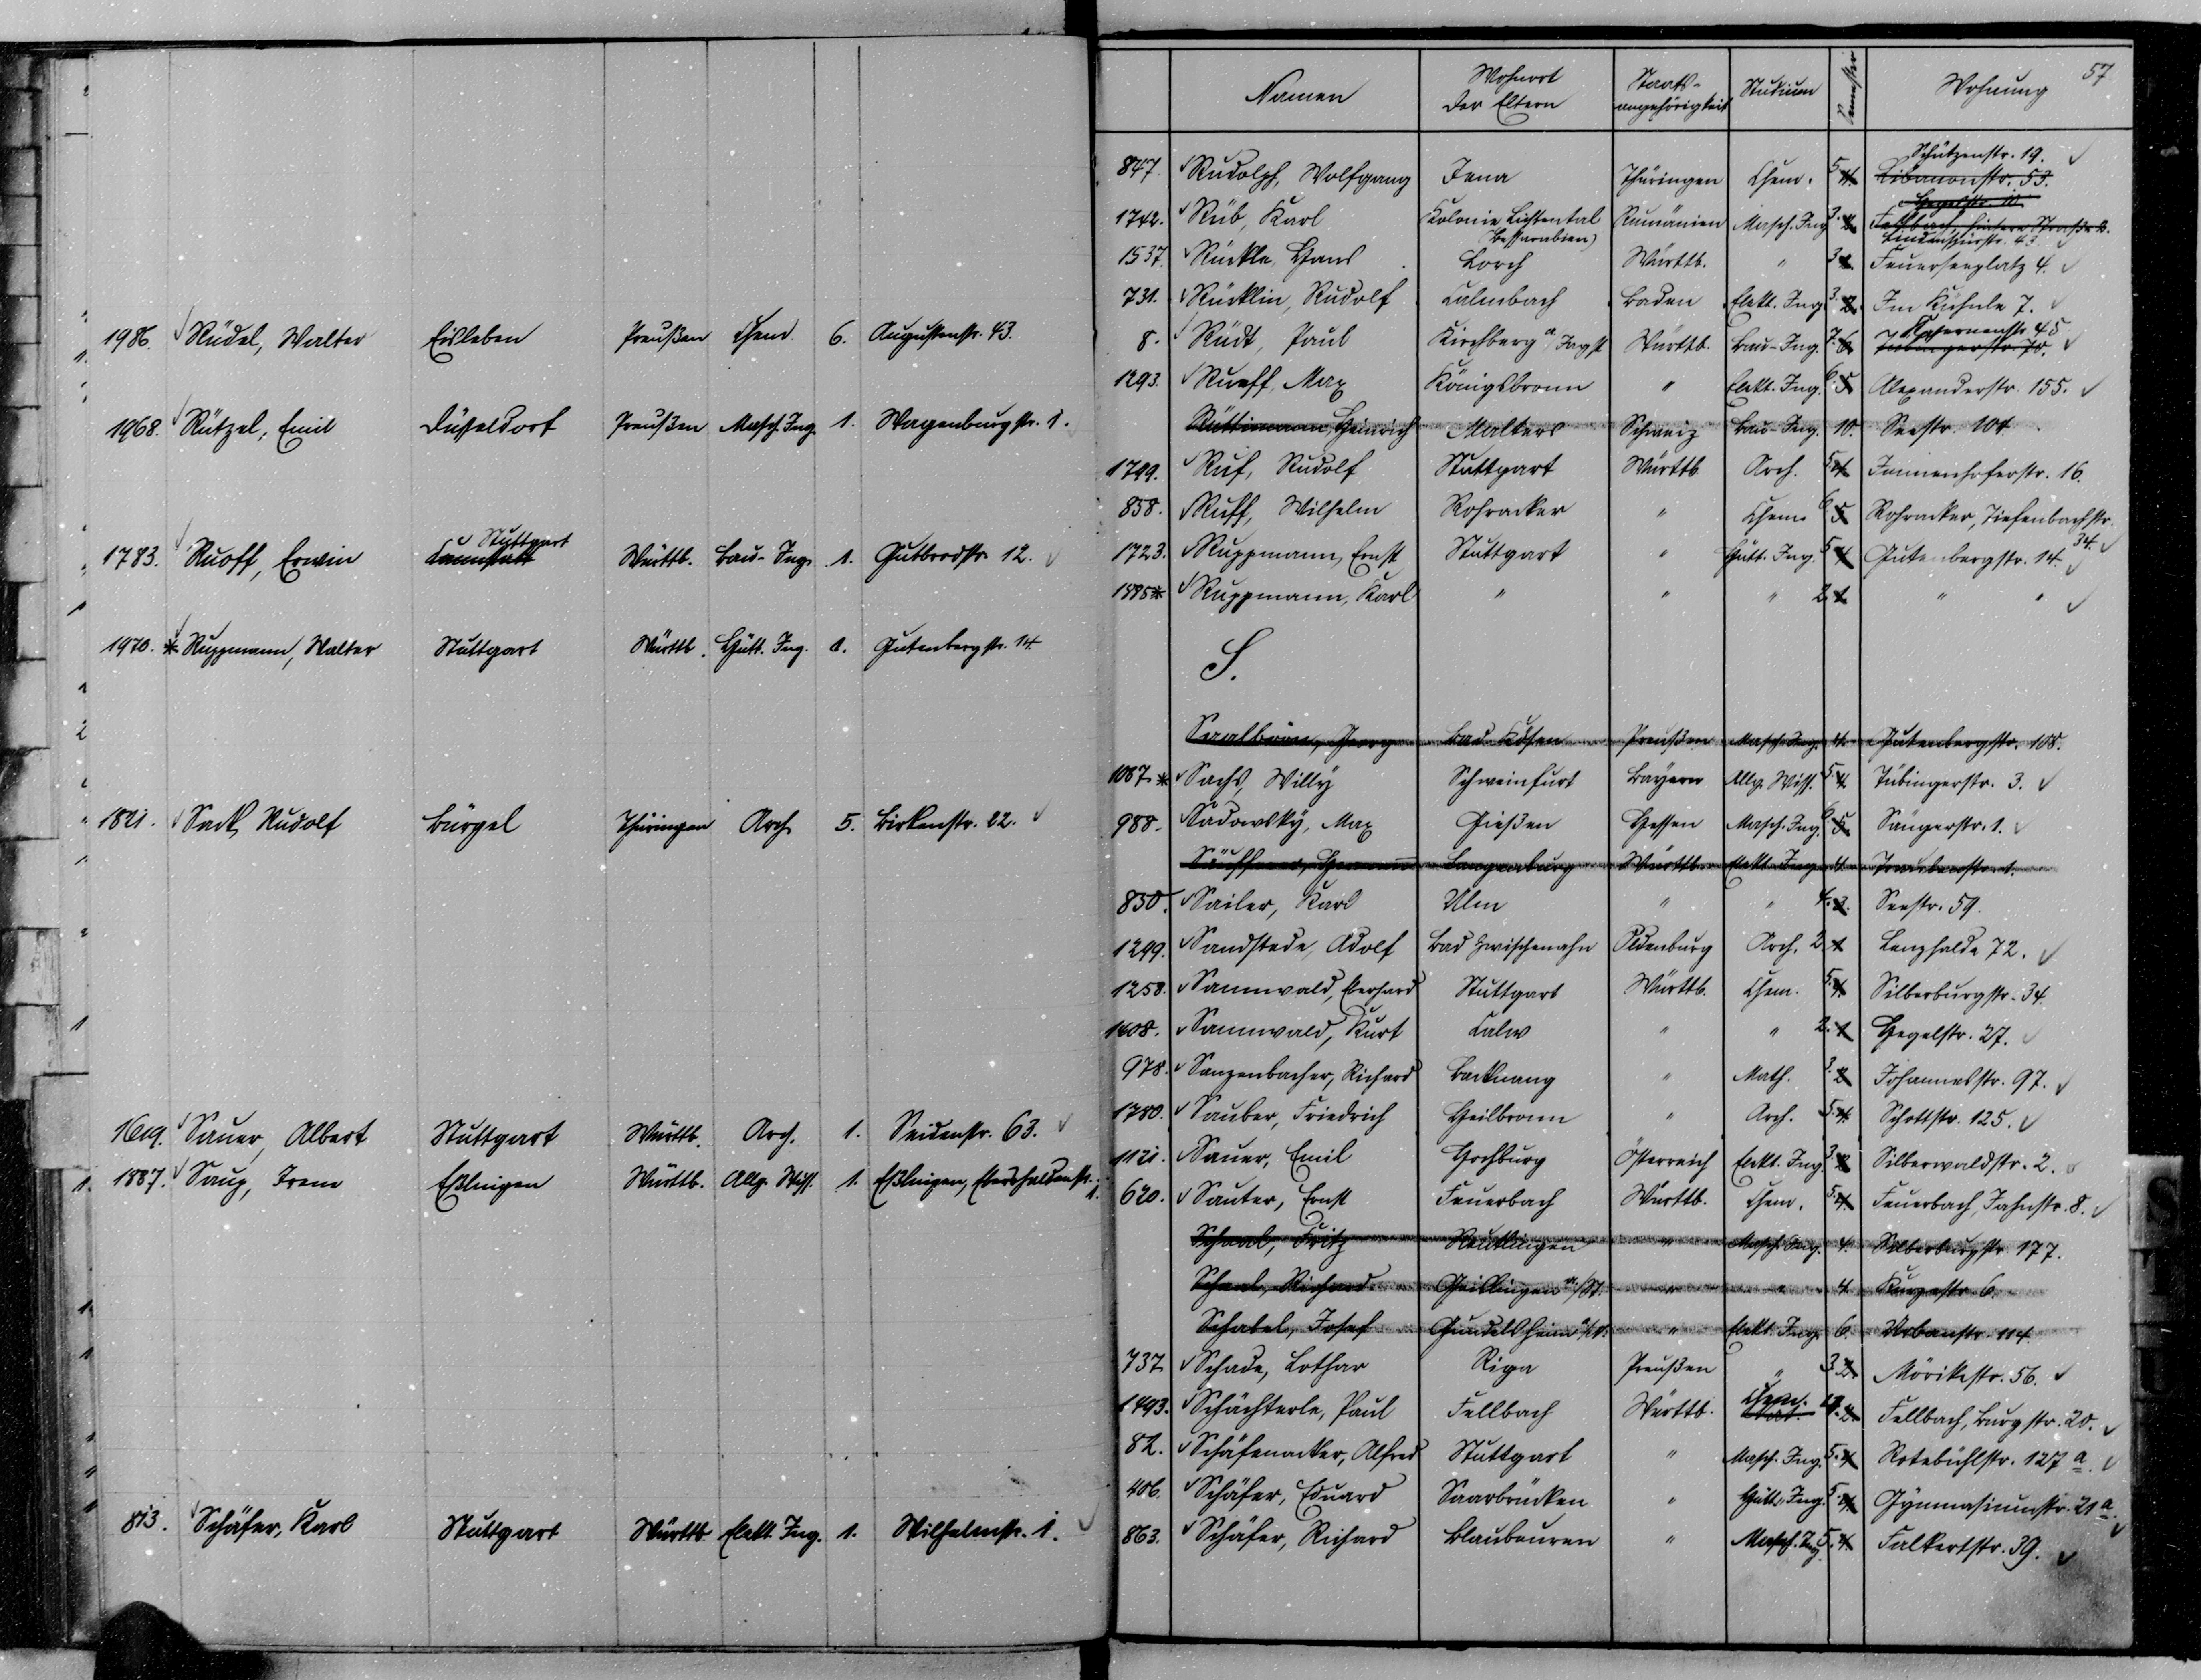 1986. Rüdel, Walter Eisleben Preußen Chem. 6. Augustenstr. 43.
1968. Rützel, Emil Düsseldorf Preußen Masch. Ing. 1. Wagenburgstr. 1.
Stuttgart
1783. Ruoff, Erwin Cannstatt Württb. Bau-Ing. 1. Gutbrodstr. 12.
1970. * Ruppmann, Walter Stuttgart Württb. Hütt. Ing. 1. Gutenbergstr. 14
1821. Sack, Rudolf Bürgel Thüringen Arch. 5. Birkenstr. 22.
1619. Sauer, Albert Stuttgart Württb. Arch. 1. Seidenstr. 63.
1887. Saup, Irene Eßlingen Württb. Allg. Wiss. 1. Eßlingen, Ebershaldenstr. 1.
813. Schäfer, Karl Stuttgart Württb. Elekt. Ing. 1. Wilhelmstr. 1.
57
Namen Wohnort der Eltern Staats-angehörigkeit Studium Semester Wohnung
Schützenstr. 19.
847. Rudolph, Wolfgang Jena Thüringen Chem. 5 4. Libanonstr. 53.
Hegelstr. 10.
1742. Rüb, Karl Kolonie Lichtental Rumänien Masch. Ing. 3. 2. Fellbach, hintere Straße
(Bessarabien) Lindenspürstr. 43.
1537. Rückle, Hans Lorch Württb. " 3 2. Feuerseeplatz 4.
731. Rücklin, Rudolf Calmbach Baden Elekt. Ing. 3. 2. Im Kühnle 7.
Kasernenstr. 45
8. Rüdt, Paul Kirchberg a/Jagst Württb. Bau-Ing. 7. 6. Tübingerstr.
1293. Rueff, Max Königsbronn " Elekt. Ing. 6. 5 Alexanderstr. 155.
Rüttimann, Heinrich Malters Schweiz Bau-Ing. 10. Seestr. 104
1799. Ruf, Rudolf Stuttgart Württb. Arch. 5 4 Immenhoferstr. 16.
858. Ruff, Wilhelm Rohracker " Chem. 6 5 Rohracker, Tiefenbachstr. 34.
1723. Ruppmann, Ernst Stuttgart " Hütt. Ing. 5 4 Gutenbergstr. 14.
1895* Ruppmann, Karl " " " 2. 1. " "
S.
Saalborn, Georg Bad Kösen Preußen Masch. Ing. 4. Gutenbergstr. 108.
1087 * Sachs, Willy Schweinfurt Bayern Allg. Wiss. 5. 4. Tübingerstr. 3.
988. Sadowsky, Max Gießen Hessen Masch. Ing. 6 5. Sängerstr. 1.
Langenburg Württb. Elekt. Ing. 4
850. Sailer, Karl Ulm " " 4. 3. Seestr. 59.
1299. Sandstede, Adolf Bad Zwischenahn Oldenburg Arch. 2 1 Lenzhalde 72.
1258. Sannwald, Eberhard Stuttgart Württb. Chem. 5. 4. Silberburgstr. 34.
1408. Sannwald, Kurt Calw " " 2. 1 Hegelstr. 27.
978. Sanzenbacher, Richard Backnang " Math. 3. 2 Johannesstr. 97.
1780. Sauber, Friedrich Heilbronn " Arch. 5. 4. Schottstr. 125.
1121. Sauer, Emil Hochburg Österreich Elekt. Ing. 3. 2 Silberwaldstr. 2.
620. Sauter, Ernst Feuerbach Württb. Chem. 5. 4. Feuerbach, Jahnstr. 8.
Schaal, Fritz Reutlingen " Masch. Ing. 4. Silberburgstr. 177.
Schaal, Richard Geislingen a/St. " " 4. Kurzestr. 6.
Schabel, Josef Gundelsheim a/N. " Elekt. Ing. 6. Urbanstr. 114.
737. Schade, Lothar Riga Preußen " 3 2 Mörikestr. 56.
1493. Schächterle, Paul Fellbach Württb. Chem. 2. Fellbach, Burgstr. 20.
82. Schäfenacker, Alfred Stuttgart " Masch. Ing. 5. 4 Rotebühlstr. 127 a.
406. Schäfer, Eduard Saarbrücken " Hütt. Ing. 5. 4 Gymnasiumstr. 21 a.
863. Schäfer, Richard Blaubeuren " Masch. Ing. 5. 4. Falkertstr. 39.